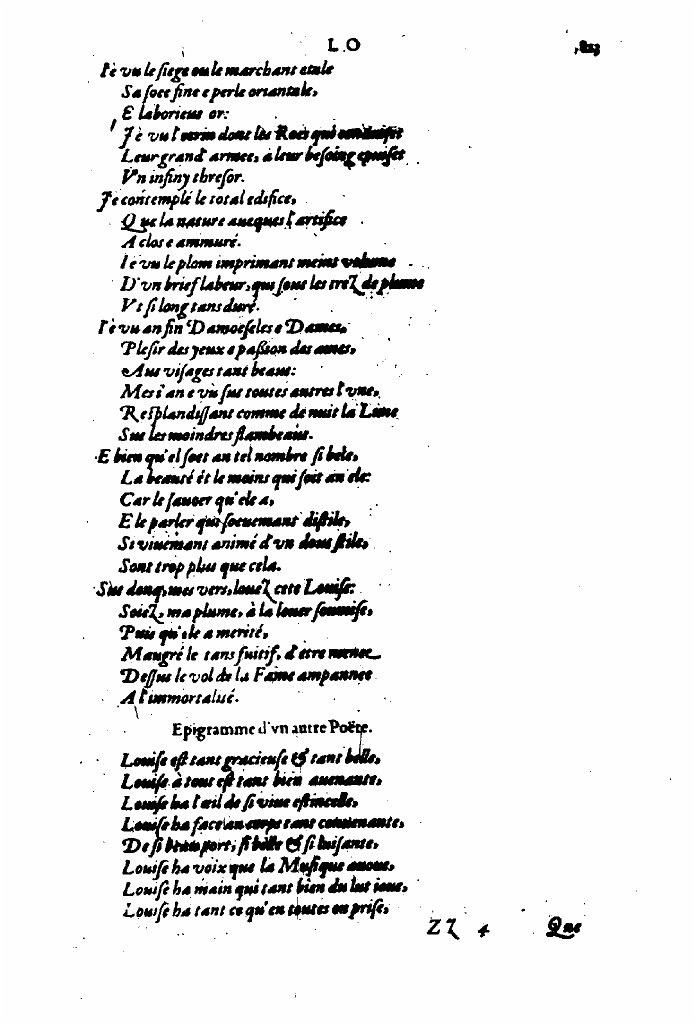 L O 823
I'è vu le siege ou le marchant etale
Sa soee fine e perle oriantale,
E laborieus or:
I'è vu l'ecrin dont les Roes qui conduiset
Leur grand' armee, à leur besoing epuiset
Vn infiny thresor.
I'e contemplé le total edifice,
Que la nature aueques l'artifice
A clos e ammuré.
I'e vu le plom imprimant meint volume
D'vn brief labeur, qui sous les trez de plume
Vt si long tans duré.
I'è vu an fin Damoeseles e Dames,
Plesir des yeux e passion des ames,
Aus visages tant beaus:
Mes i'an e vù sus toutes autres l'vne,
Resplandissant comme de nuit la Lune
Sus les moindres flambeaus.
E bien qu'el soet an tel nombre si bele,
La beauté ét le moins qui soet an ele:
Car le sauoer qu'ele a,
E le parler qui soeuemant distile,
Si viuemant animé d'vn dous stile,
Sont trop plus que cela.
Sus donq, mes vers, louez cete Louise:
Soiez, ma plume, à la louer soumise,
Puis qu'ele a merité,
Maugré le tans fuitif, d'etre menee
Dessus le vol de la Fame ampannee
A l'immortalité.
Epigramme d'vn autre Poëte.
Louise est tant gracieuse & tant belle,
Louise à tout est tant bien auenante,
Louise ha l'œil de si viue estincelle,
Louise ha face au corps tant conuenante,
De si beau port, si belle & si luisante,
Louise ha voix que la Musique auoue,
Louise ha main qui tant bien du lut ioue,
Louise ha tant ce qu'en toutes on prise,
Zz 4 Que